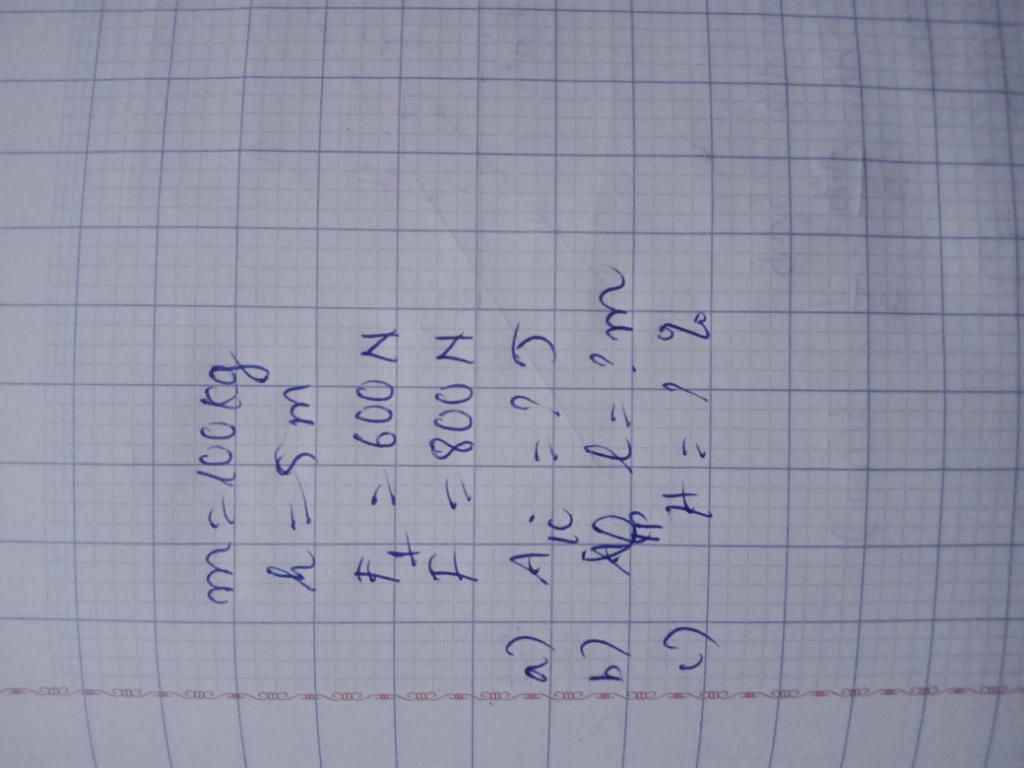 m = 100 kg
h = 5 m
F₁ = 600 N
F = 800 N
a) Aᵢc = ? J
b) l = ? m
c) H = ? %